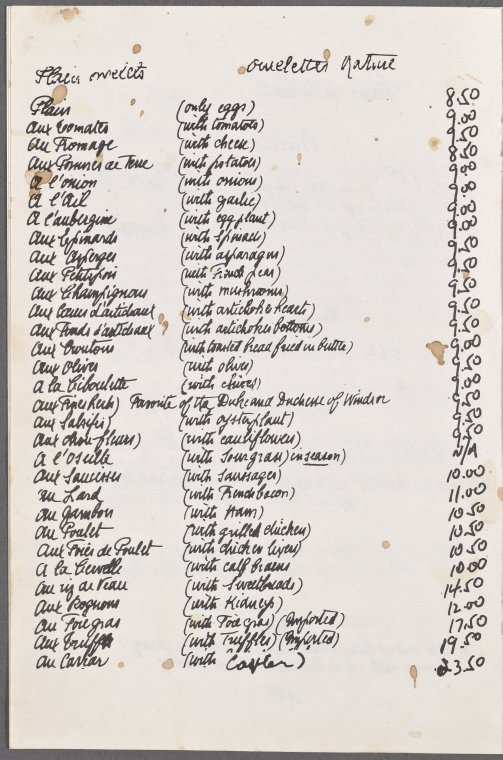 Plain omelets omelettes Nature
Plain (only eggs) 8.50
aux tomates (with tomatoes) 9.00
au Fromage (with cheese) 9.00
aux Pommes de Terre (with potatoes) 8.50
A l'onion (with onions) 9.00
A l'Ail (with garlic)
A l'aubergine (with eggplant)
aux Epinards (with spinach)
aux Asperges (with asparagus)
aux Petitpois (with French peas)
aux Champignons (with mushrooms)
aux Cœurs d'artichaux (with artichoke hearts)
aux Fonds d'artichaux (with artichoke bottoms)
aux Croutons (with toasted bread fried in butter)
aux Olives (with olives)
a la Ciboulette (with chives)
aux Fines herbs) Favorite of the Duke and Duchesse of Windsor
aux Salsifis (with oysterplant)
aux chou-fleurs) (with cauliflowers)
a l'Oseille (with Sourgrass) in season) N/A
aux Saucisses (with Sausages) 10.00
au Lard (with French bacon) 11.00
au Jambon (with Ham) 10.50
au Poulet (with grilled chicken) 10.50
aux Foies de Poulet (with chicken livers) 10.50
a la Cervelle (with calf brains 10.00
au ris de Veau (with Sweetbreads) 14.50
aux Rognons (with Kidneys) 12.00
au Foie gras (with Foie gras) (Imported) 17.50
aux Truffes (with Truffles) (Imported) 19.50
au Caviar (with Caviar) 23.50